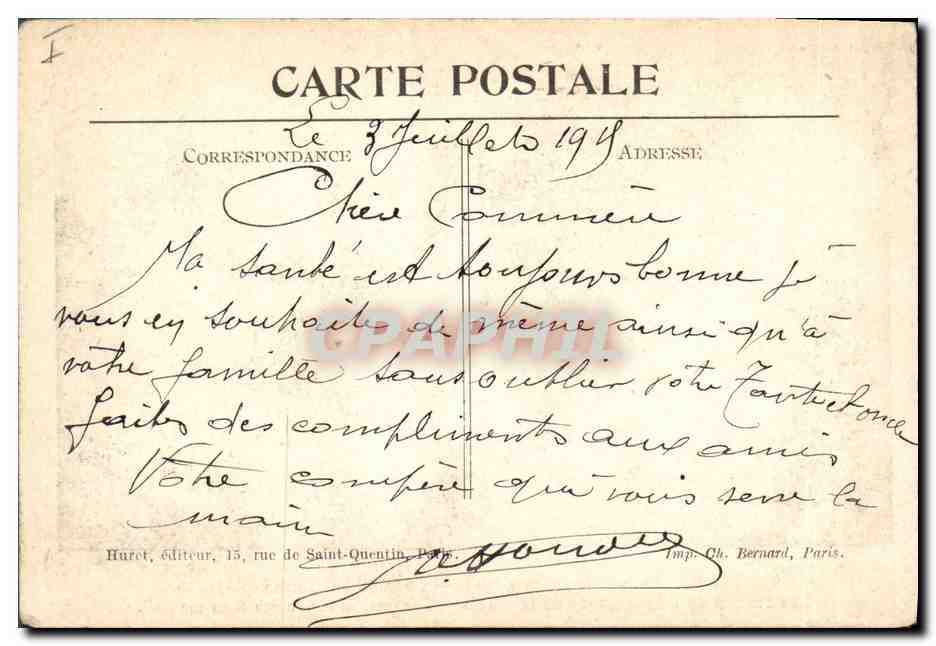 I
CARTE POSTALE
Le 3 Juillet 1915
CORRESPONDANCE
ADRESSE
Chère Commère
Ma santé est toujours bonne je
vous en souhaite de même ainsi qu'à
votre famille sans oublier votre Tante et oncle
faites des compliments aux amis
Votre compère qui vous serre la
main
Huret, éditeur, 15, rue de Saint-Quentin, Paris.
Imp. Ch. Bernard, Paris.
CPAPHIL